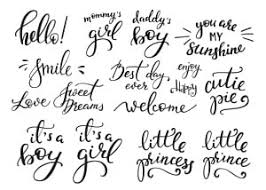 hello!
mommy's
girl
daddy's
boy
you are
MY
Sunshine
Smile
Love
Sweet
Dreams
Best day
ever
enjoy
Happy
welcome
cutie
pie
it's a
boy
it's a
girl
little
princess
little
prince